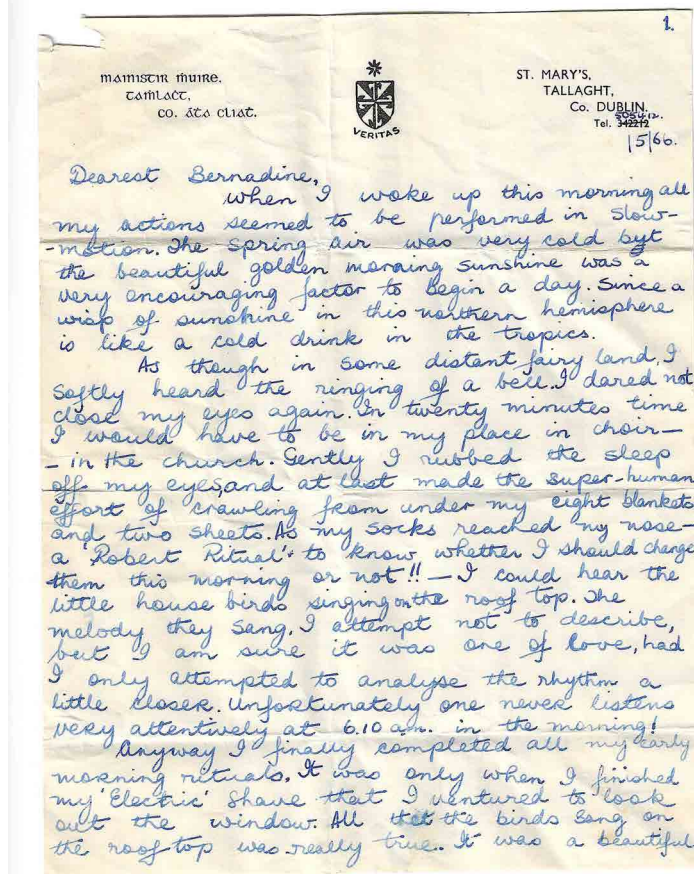 1.
mainistir muire,
tamlact,
co. áta cliat.
VERITAS
ST. MARY'S,
TALLAGHT,
Co. DUBLIN.
505412.
Tel. 342212
1/5/66.
Dearest Bernadine,
When I woke up this morning all
my actions seemed to be performed in slow-
-motion. The Spring air was very cold but
the beautiful golden morning sunshine was a
very encouraging factor to begin a day. Since a
wisp of sunshine in this northern hemisphere
is like a cold drink in the tropics.
As though in some distant fairy land, I
softly heard the ringing of a bell. I dared not
close my eyes again. In twenty minutes time
I would have to be in my place in choir—
— in the church. Gently I rubbed the sleep
off my eyes, and at last made the super-human
effort of crawling from under my eight blankets
and two sheets. As my socks reached my nose—
a 'Robert Ritual' to know whether I should change
them this morning or not!! — I could hear the
little house birds singing on the roof top. The
melody they sang, I attempt not to describe,
but I am sure it was one of love, had
I only attempted to analyse the rhythm a
little closer. Unfortunately one never listens
very attentively at 6.10 a.m. in the morning!
Anyway I finally completed all my early
morning rituals. It was only when I finished
my 'Electric' Shave that I ventured to look
out the window. All that the birds sang on
the roof top was really true. It was a beautiful